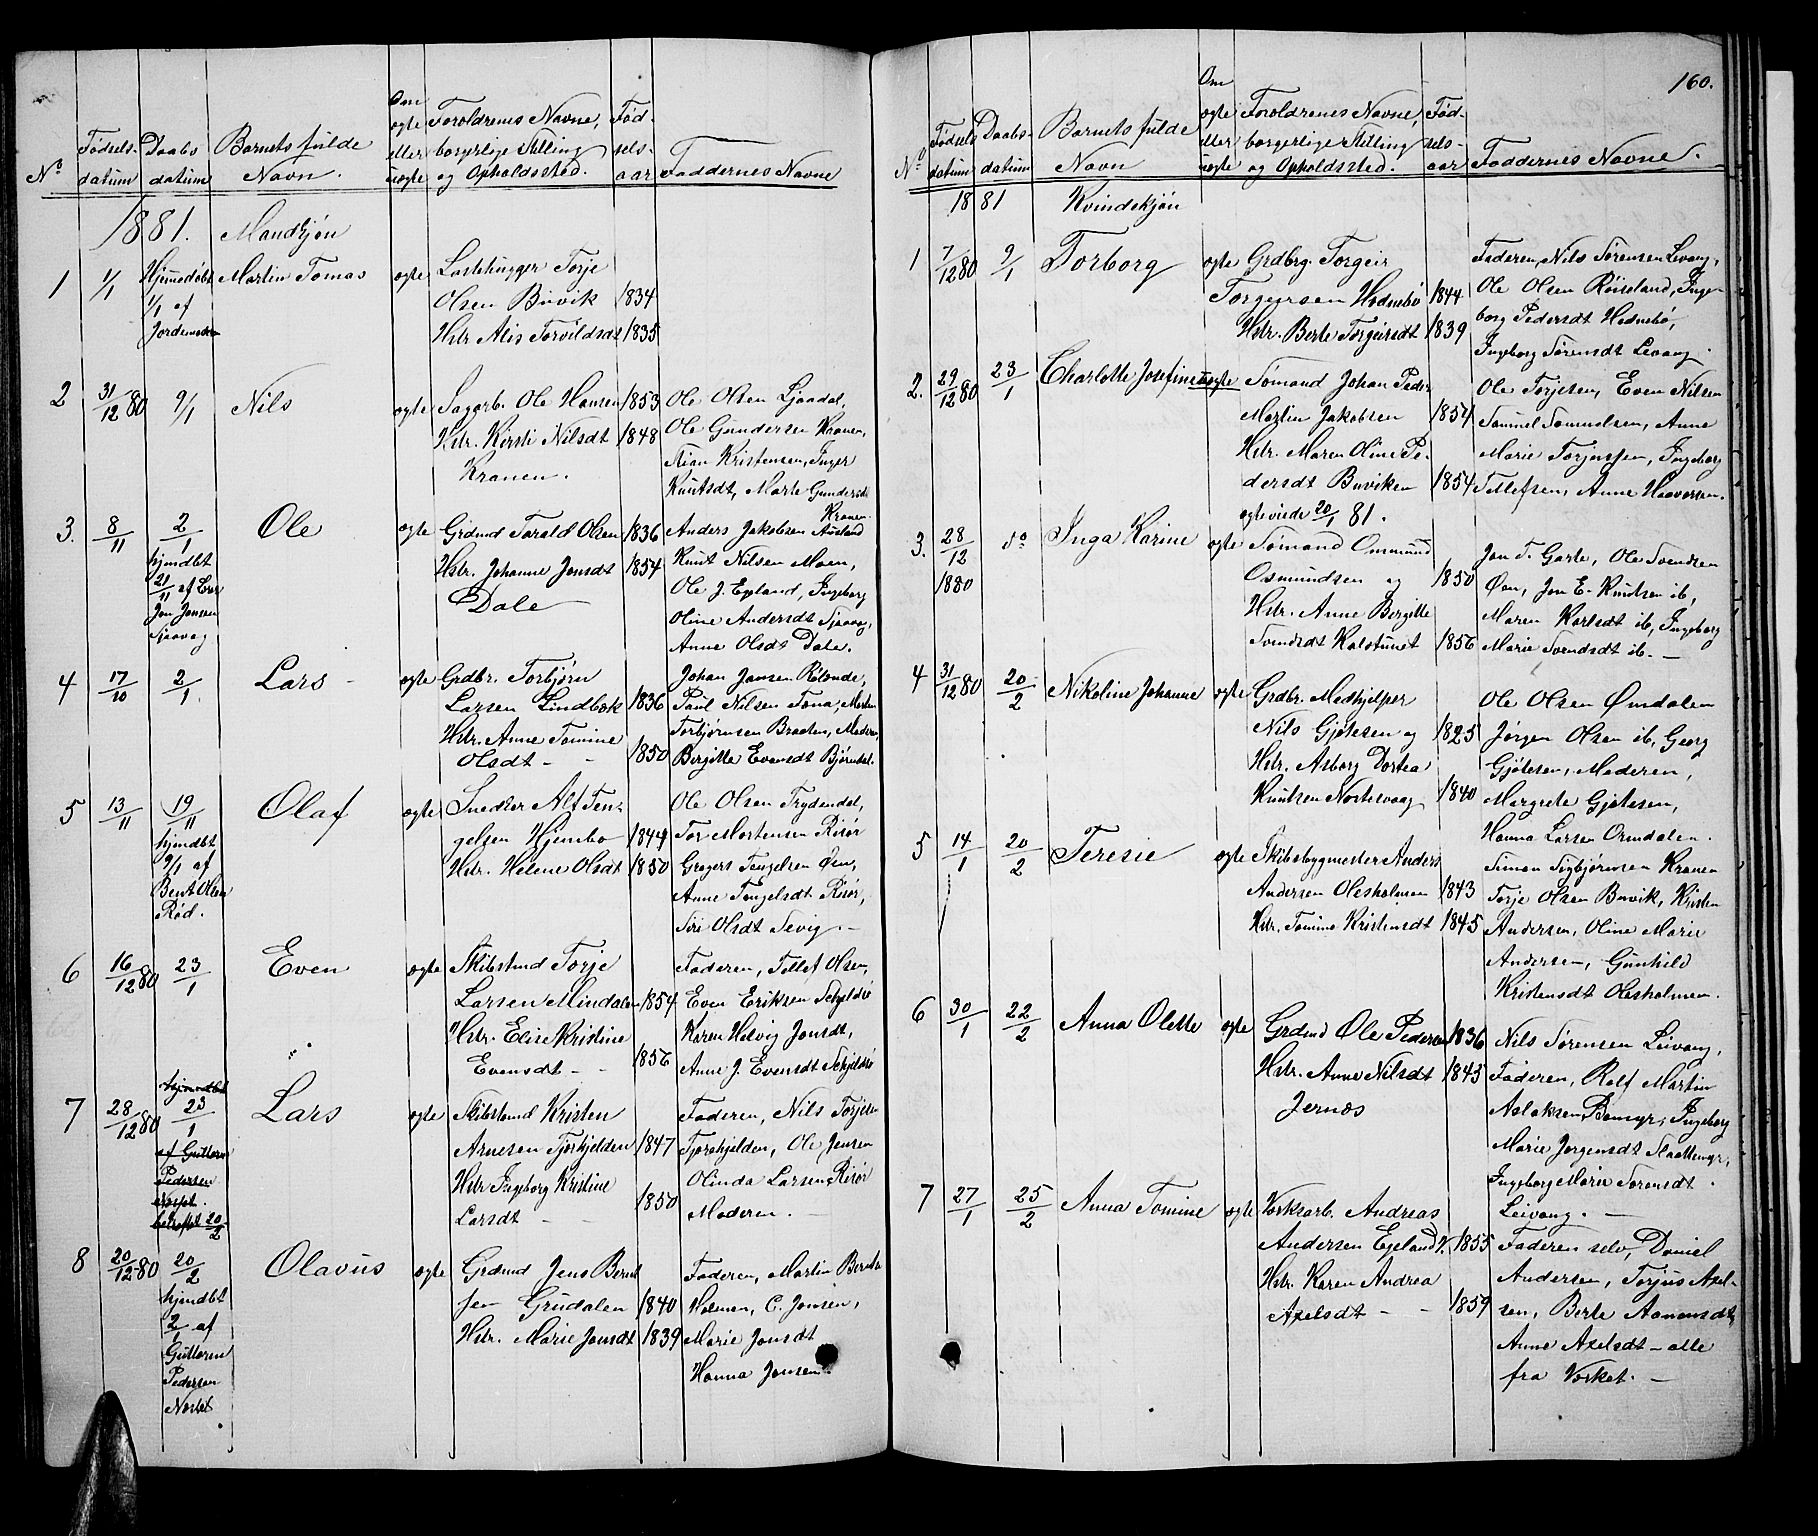 160.
No Fødsels- datum Daabs datum Barnets fulde Navn. Om ægte eller uægte Forældrenes Navne, borgerlige Stilling og Opholdssted. Fød- sels- aar Faddernes Navne
1881. Mandkjøn
1 1/1 Hjemmedøbt 1/1 af Jordemoderen Martin Tomas ægte
Lastehugger Torje
Olsen Buvik 1834
Hstr. Alis Torvildsdt 1835
2 31/12 80 9/1 Nils ægte
Sagarb. Ole Hansen 1853
Hstr. Kirsti Nilsdt 1848
Kranen.
Ole Olsen Ljaadal,
Ole Gundersen Kranen,
Kristensen, Inger
Knutsdt, Marte Gundersdt
Kranen.
3. 8/11 2/1 Ole ægte
hjmdbt
21/11 af
Jon Jensen
Sjaavag
Grdmd Torald Olsen 1836
Hstr. Johanne Jensdt 1854
Dale
Anders Jakobsen Austad
Knut Nilsen Moen,
Ole J. Egeland, Ingeborg
Oline Andersdt Sjaavag,
Anne Olsdt Dale.
4 17/10 2/1 Lars - ægte
Grdbr. Torbjørn
Larsen Lindbæk 1836
Hstr. Anne Tomine
Olsdt - - 1850
Johan Jansen Rølonde,
Paul Nilsen Tona, Morten
Torbjørnsen Braaten, Moderen,
Birgitte Evensdt Bjørndal.
5 13/11 19/11 Olaf ægte
hjmdbt
9/1 af
Bent Olsen
Rød.
Snedker Alf Ten-
gelsen Hjembo 1844
Hstr. Helene Olsdt 1850
Ole Olsen Trydendal,
Tor Mortensen Risør
Gregers Tengelsen Øen,
Anne Tengelsdt Risør,
Siri Olsdt Sevig. -
6 16/12 80 23/1 Even ægte
Skibstmd Torje
Larsen Mindalen 1854
Hstr. Elise Kristine
Evensdt - - 1856
Faderen, Tellef Olsen,
Even Eriksen Skjeldsø
Karen Helvig Jensdt,
Anne J. Evensdt Skjeldsø
7 28/12 80 23/1 Lars ægte
hjmdbt
af Guttorm
Pedersen
Næset
bekræftet 20/2
Skibstmd Kristen
Arnesen Fjorkjelden 1847
Hstr Ingeborg Kristine
Larsdt - - 1850
Faderen, Nils Torjesen
Fjorkjelden, Ole Jensen
Olinda Larsen Risør
Moderen. -
8 20/12 80 20/2 Olavus ægte
hjmdbt
2/1 af
Guttorm
Pedersen
Næset
Grdmd Jens Bernt
sen Grudalen 1840
Hstr. Marie Jensdt 1839
Faderen, Martin Berntsen
Holmen, C. Jensen,
Marie Jensdt
Hanna Jensen.
No Fødsels datum Daabs- datum Barnets fulde Navn Om ægte eller uægte Forældrenes Navne, borgerlige Stilling og Opholdssted. Fød- sels- aar Faddernes Navne.
1881 Kvindekjøn
1 7/12 80 9/1 Torborg ægte
Grdbrg. Torgeir
Torgeirsen Hødnebø 1844
Hstr. Berte Torgeirsdt 1839
Faderen, Nils Sørensen Levang,
Ole Olsen Røiseland, Inge-
borg Pedersdt Hødnebø,
Ingeborg Sørensdt Levang.
2. 29/12 80 23/1 Charlotte Josefine uægte
Sømand Johan Peder
Martin Jakobsen 1854
Hstr. Maren Oline Pe-
dersdt Buviken 1854
ægteviede 20/1 81.
Ole Torjesen, Even Nilsen
Samuel Samuelsen, Anne
Marie Torjessen, Ingeborg
Tellefsen, Anne Haavorsen.
3. 28/12 1880 do Inga Karine ægte
Sømand Ommund
Osmundsen og 1850
Hstr. Anne Birgitte
Svendsdt Kalstunet 1856
Jon T. Garte, Ole Svendsen
Øen, Jon E. Knutsen ib,
Maren Karlsdt ib, Ingeborg
Marie Svendsdt ib. -
4 31/12 80 20/2 Nikoline Johanne ægte
Grdbr. Medhjelper
Nils Gjøtesen og 1825
Hstr. Asborg Dortea
Knutsen Nortevaag 1840
Ole Olsen Ømdalen
Jørgen Olsen ib, Georg
Gjøtesen, Moderen,
Margrete Gjøtesen,
Hanna Larsen Ormdalen.
5 14/1 20/2 Teresie ægte
Skibsbygmester Anders
Andersen Olesholmen 1843
Hstr. Tomine Kristensdt 1845
Simon Sigbjørnsen Kranen
Torje Olsen Buvik, Kristen
Andersen, Oline Marie
Andersen, Gunhild
Kristensdt Olesholmen.
6 30/1 22/2 Anna Olette ægte
Grdmd Ole Pedersen 1836
Hstr. Anne Nilsdt 1843
Jernæs
Nils Sørensen Leivang,
Faderen, Rolf Martin
Aslaksen Bomyr, Ingeborg
Marie Jørgensdt Slaattemyr,
Ingeborg Marie Sørensdt
Leivang. -
7 27/1 25/2 Anna Tomine ægte
Værksarb. Andreas
Andersen Egeland V. 1855
Hstr. Karen Andrea
Axelsdt - - 1859
Faderen selv, Daniel
Andersen, Torjus Axel-
sen, Berte Aanonsdt
Anne Axelsdt - alle
fra Værket. -